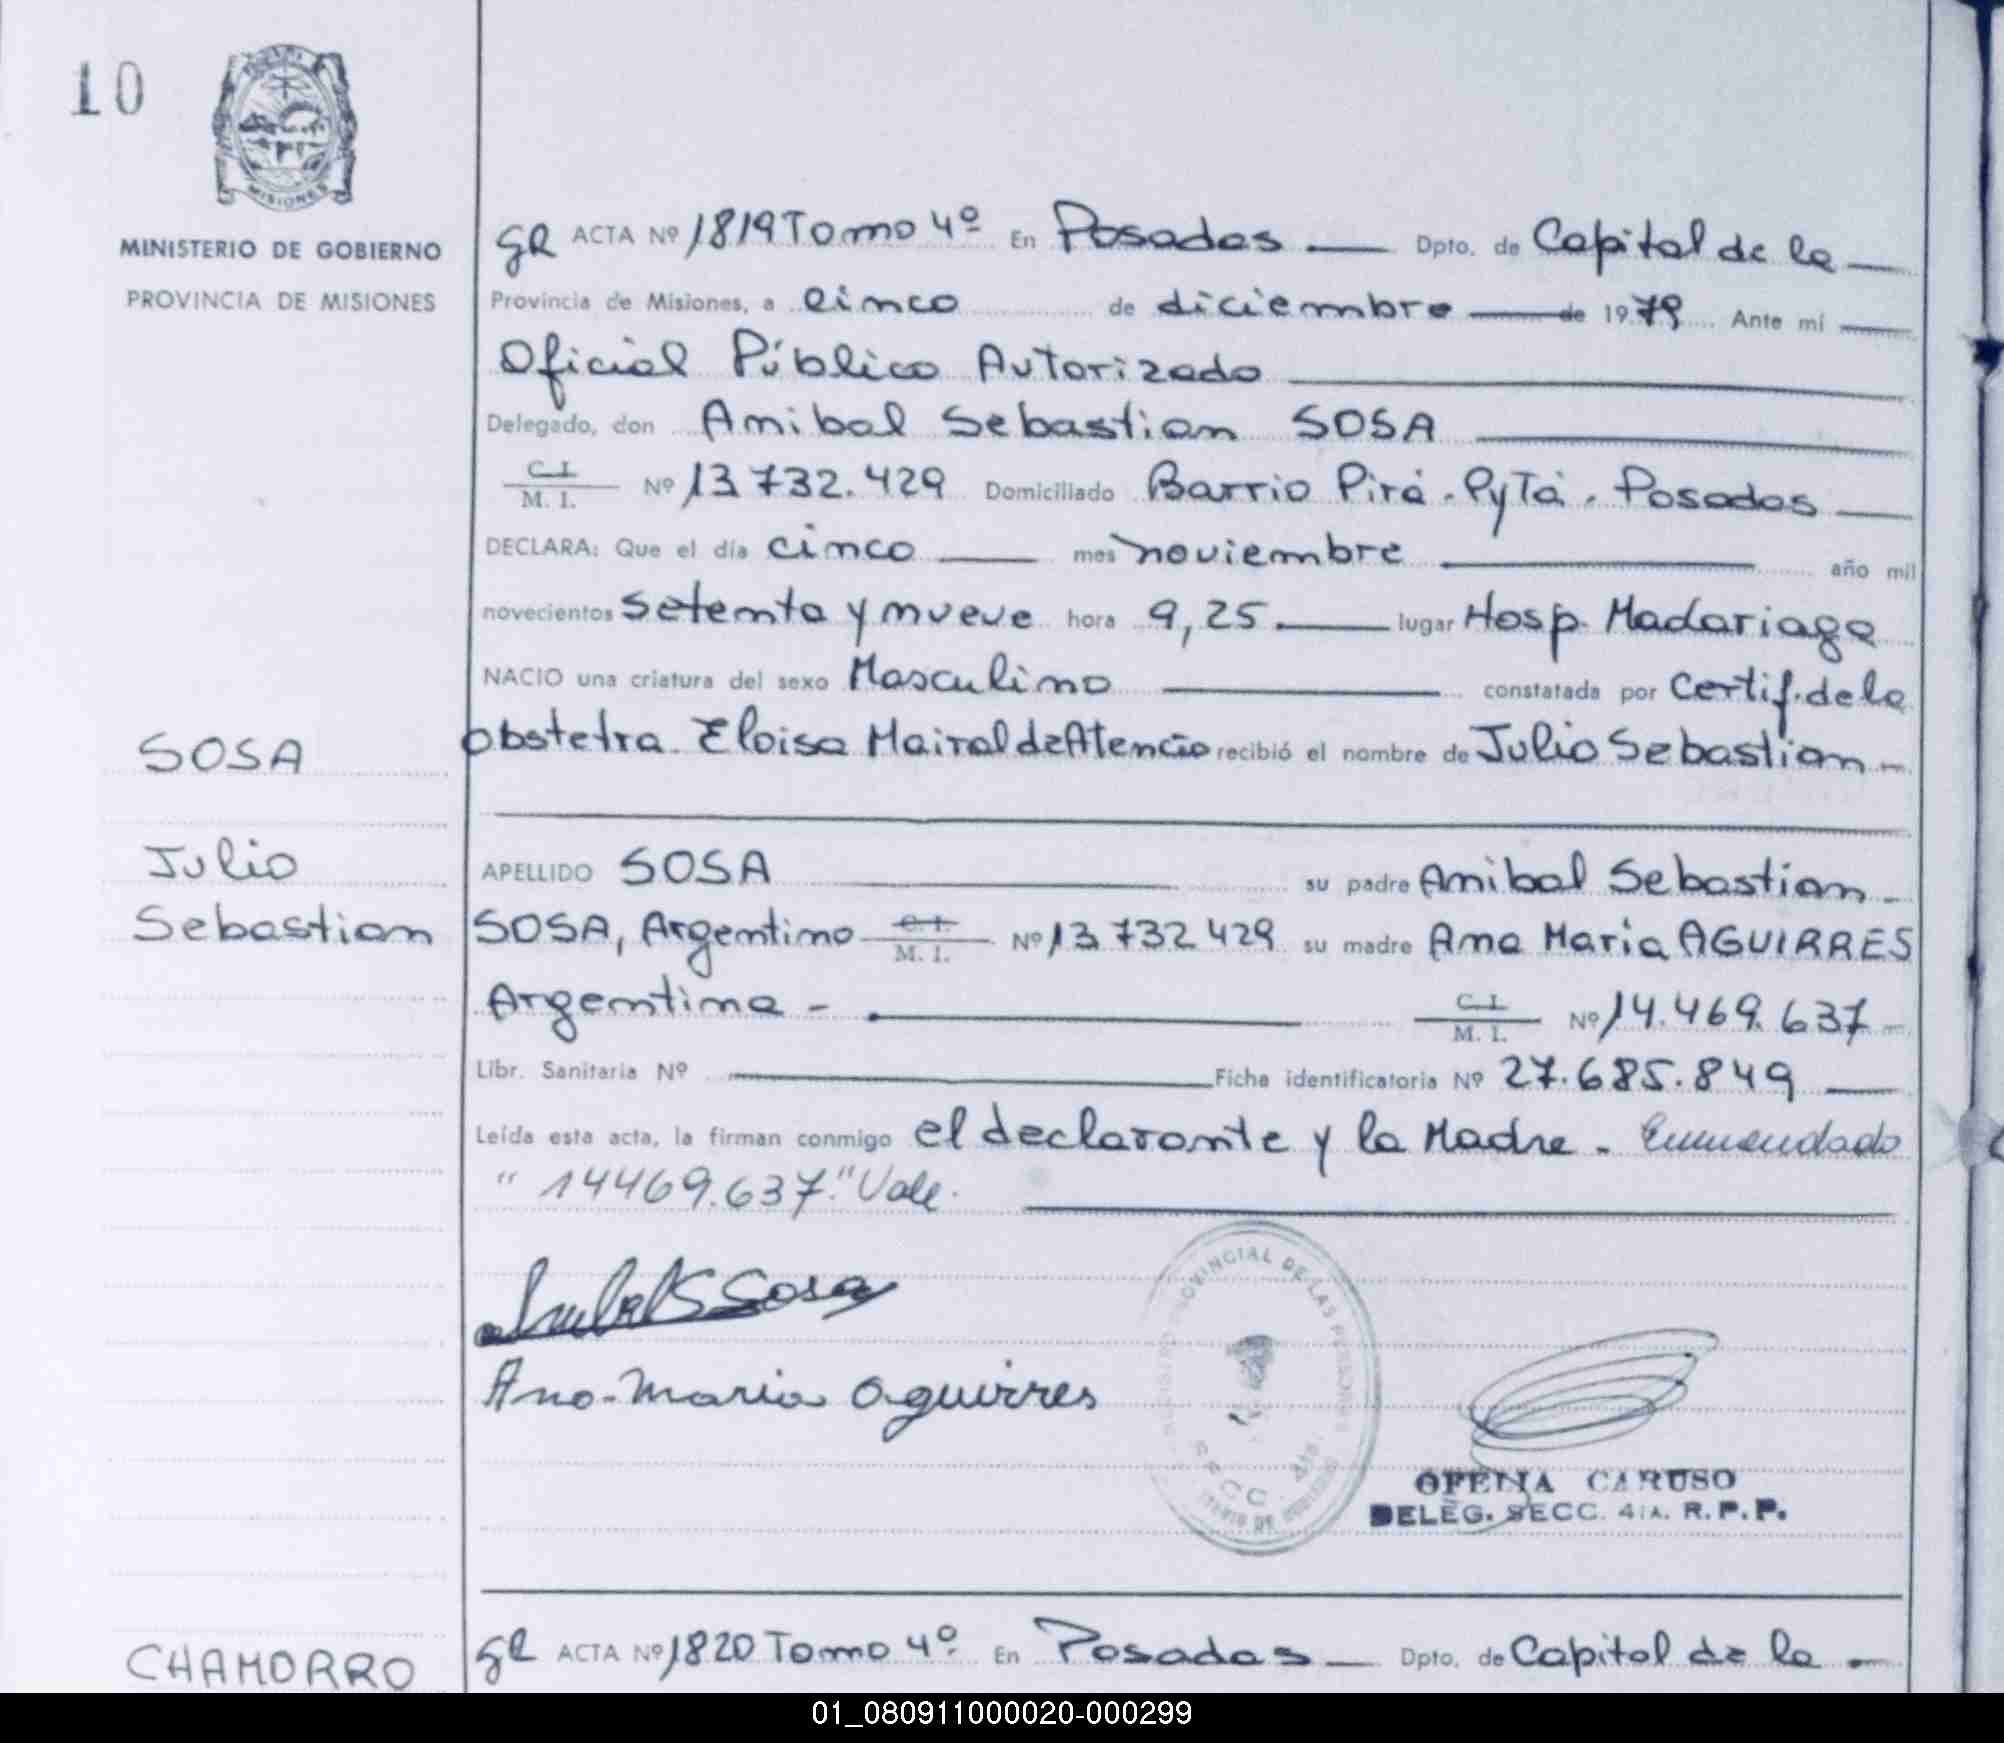 10
MISIONES
MINISTERIO DE GOBIERNO
PROVINCIA DE MISIONES
SOSA
Julio
Sebastian
gR ACTA Nº 1819 Tomo 4º En Posadas — Dpto. de Capital de la —
Provincia de Misiones, a cinco de diciembre — de 1979 Ante mí —
Oficial Público Autorizado
Delegado, don Anibal Sebastian SOSA
C. I. / M. I. Nº 13.732.429 Domiciliado Barrio Pirá-Pytá. Posadas —
DECLARA: Que el día cinco — mes noviembre — año mil
novecientos setenta y nueve hora 9,25 — lugar Hosp. Madariaga
NACIO una criatura del sexo Masculino — constatada por Certif. de la
obstetra. Eloisa Mairal de Atencio recibió el nombre de Julio Sebastian —
APELLIDO SOSA — su padre Anibal Sebastian —
SOSA, Argentino C. I. / M. I. Nº 13.732.429 su madre Ana Maria AGUIRRES
Argentina - — C. I. / M. I. Nº 14.469.637 —
Libr. Sanitaria Nº — Ficha identificatoria Nº 27.685.849 —
Leída esta acta, la firman conmigo el declarante y la Madre. Enmendado
"14469.637." Vale.
Anibal S Sosa
Ana-Maria Aguirres
PROVINCIAL DE LAS
SECC. 4ta.
OFELIA CARUSO
DELEG. SECC. 4ta. R.P.P.
CHAMORRO
gR ACTA Nº 1820 Tomo 4º. En Posadas — Dpto. de Capital de la —
01_080911000020-000299